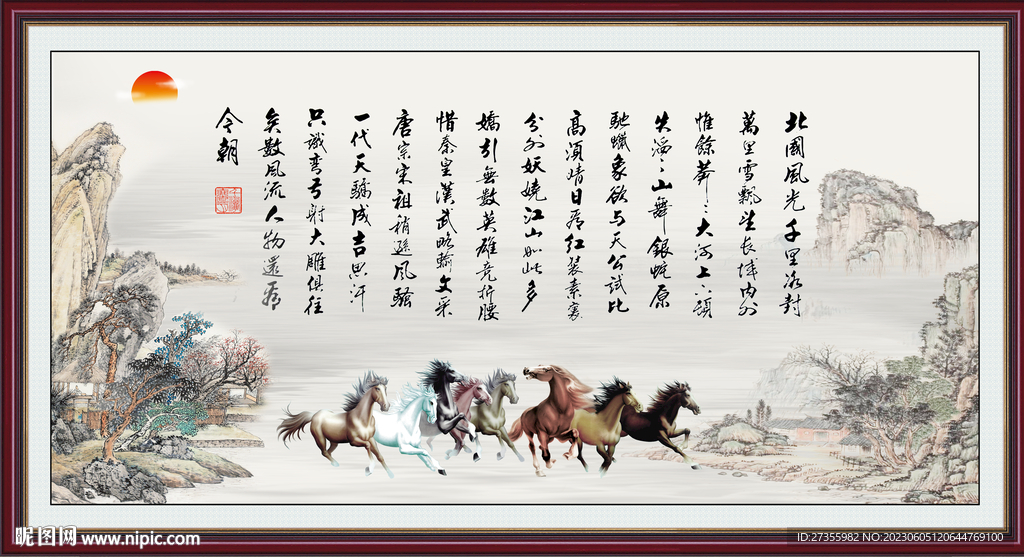 北國風光千里冰封
萬里雪飄望長城內外
惟餘莽莽大河上下頓
失滔滔山舞銀蛇原
馳蠟象欲与天公試比
高須晴日看紅裝素裹
分外妖嬈江山如此多
嬌引無數英雄競折腰
惜秦皇漢武略輸文采
唐宗宋祖稍遜風騷
一代天驕成吉思汗
只識彎弓射大雕俱往
矣數風流人物還看
今朝
昵图网 www.nipic.com
ID:27355982 NO:20230605120644769100